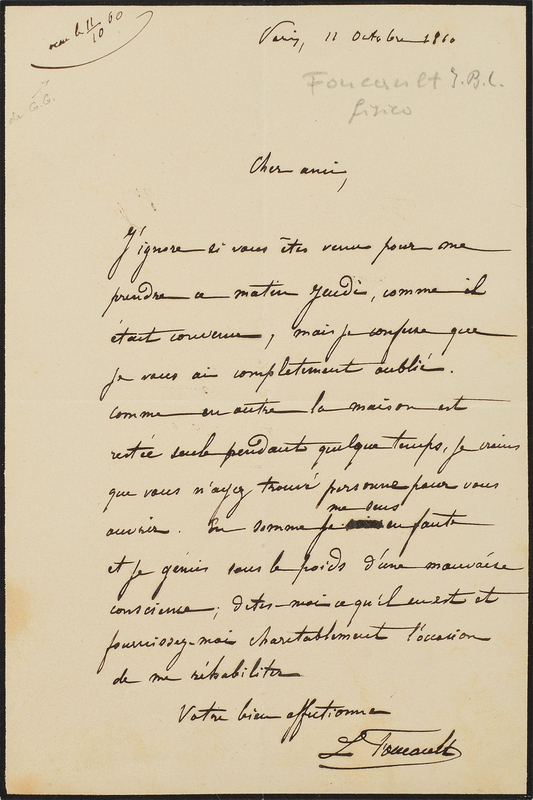 reçu le 11/10 60
Paris, 11 Octobre 1860
Foucault J.B.L.
fisico
de G.G.
Cher ami,
J'ignore si vous êtes venu pour me
prendre ce matin Jeudi, comme il
était convenu, mais je confesse que
je vous ai complètement oublié.
Comme en outre la maison est
restée seule pendant quelque temps, je crains
que vous n'ayez trouvé personne pour vous
ouvrir. En somme je me sens en faute
et je gémis sous le poids d'une mauvaise
conscience; dites-moi ce qu'il en est et
fournissez-moi charitablement l'occasion
de me réhabiliter
Votre bien affectionné
L Foucault